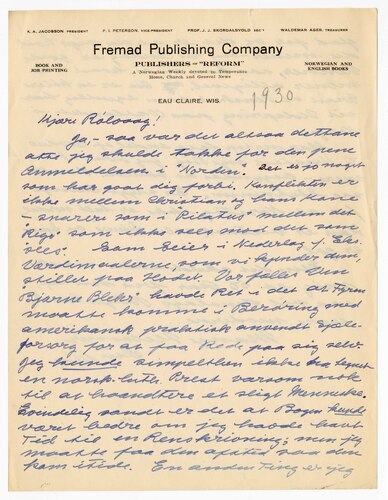 K. A. JACOBSON, PRESIDENT P. I. PETERSON, VICE-PRESIDENT PROF. J. J. SKORDALSVOLD, SEC'Y WALDEMAR AGER, TREASURER
Fremad Publishing Company
BOOK AND JOB PRINTING PUBLISHERS OF "REFORM" NORWEGIAN AND ENGLISH BOOKS
A Norwegian Weekly devoted to Temperance
Home, Church and General News
EAU CLAIRE, WIS.
1930
Kjære Rölvaag!
Ja, – saa var det altsaa dethane
atte jeg skulde takke for den pene
Anmeldelsen i "Norden". Det er jo noget
som har gaat dig forbi. Konflikten er
ikke mellem Christian og hans Kone
– snarere som i Pilatus' mellem det
Rige som ikke sees mod det som
"sees". Som Geier i Nederlag f. Eks.
Værdimaalerne, som vi kjender dem,
stillet paa Hodet. Vor fælles Ven
Bjarne Blehr havde Ret i det at Fyren
maatte komme i Beröring med
amerikansk praktisk anvendt Sjæle-
forsorg for at faa Rede paa sig selv.
Jeg kunde simpelthen ikke ha tegnet
en norsk luth. Prest varsom nok
til at haandtere et sligt Menneske.
Evindelig sandt er det at Bogen kunde
været bedre om jeg havde havt
Tid til en Renskrivning; men jeg
maatte faa den afsted saa den
kom itide. En anden Ting er jeg